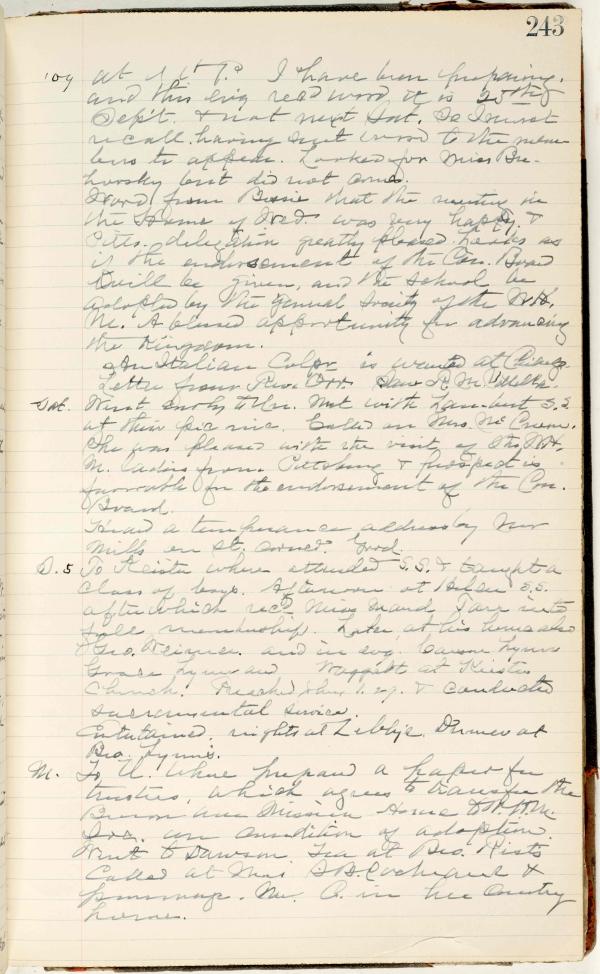 243
'09 at I have been preparing.
and this evg recd word it is 25th
Sept. & not next Sat. So I must
recall having sent word to the mem
bers to appear. Looked for Miss
but did not come.
Word from that the meeting in
the Home of Wed. was very happy, &
Pitts. delegation greatly pleased. Looks as
if the endorsement of the Con. Board
will be given, and the School be
adopted by the General Society of the W.H.
M. A blessed opportunity for advancing
the Kingdom.
An Italian Colpr is wanted at
Letter from Rev. Orr. Saw R.M.
Sat. Went early to Un. Met with Lambert S.S.
at their pic nic. Called on Mrs.
She was pleased with the visit of the W.H.
M. ladies from Pittsburg & prospect is
favorable for the endorsement of the Con.
Board.
Heard a temperance address by
Mills on St. corner. Good.
S. 5 To Keister where attended S.S. & taught a
class of boys. Afternoon at S.S.
after which recd Miss Maud into
full membership. Later, at his home also
Geo. and in evg.
Grace and at Keister
Church. Preached & conducted
sacramental service.
Entertained nights at Dinner at
Bro.
M. To U. Where prepared a paper for
trustees, which agrees to transfer the
and Mission Home to W.H.M.
Soc. on condition of adoption.
Went to Dawson. Tea at Bro.
Called at Mrs &
parsonage. Mrs. C. in her Country
home.